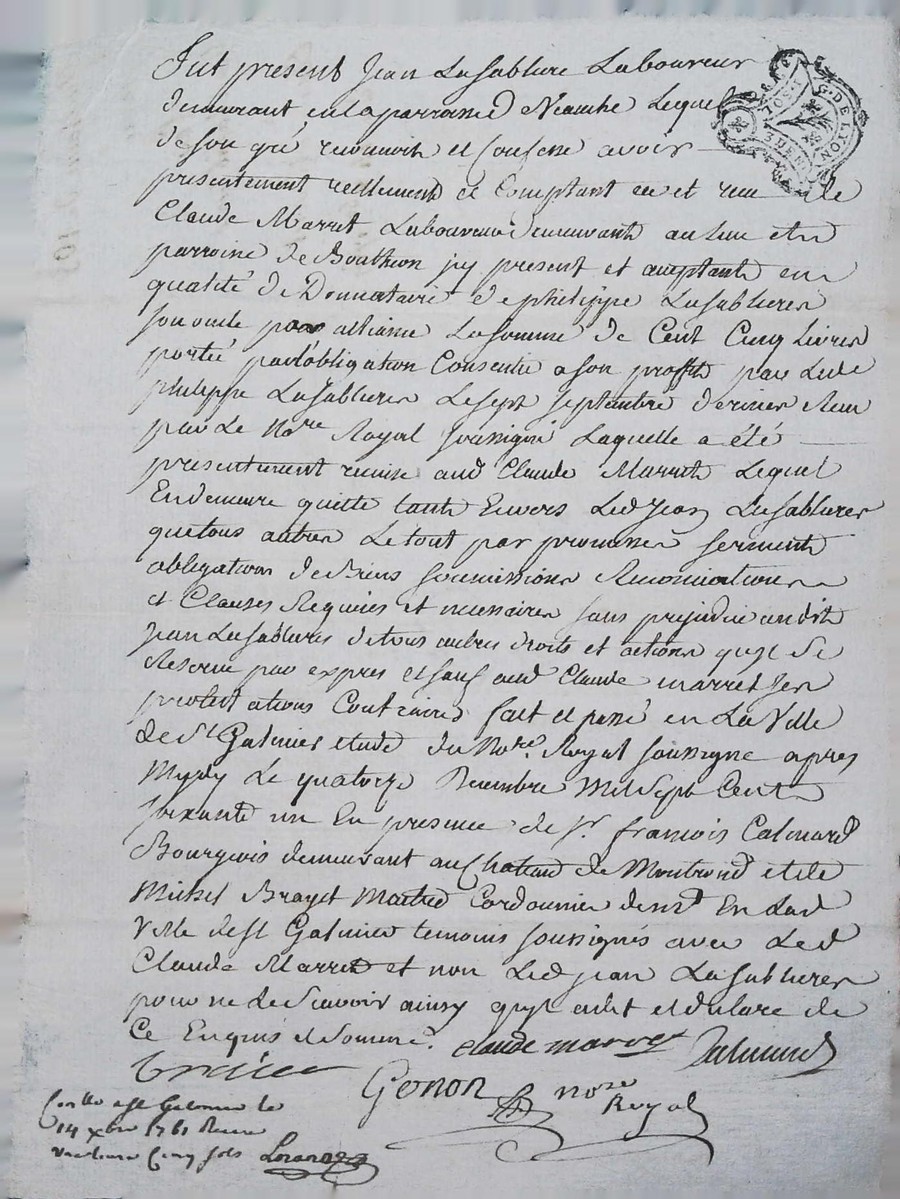 Fut present Jean Lasablure Laboureur
demeurant en la parroisse d Neauhe Lequel
de son gré reconnoit et Confesse avoir
presentement reellement et Comptant eu et receu de
Claude Marret Laboureur demeurant au lieu et
parroisse de Bouthéon jcy present et aceptant en
qualité de Donnataire de philippe Lasablieres
son oncle par alliance La somme de Cent Cinq Livres
porté par l'obligation Consentie a son proffit par Led
philippe Lasablieres Le sept septembre dernier Receu
par Le No.re Royal soussigné Laquelle a été
presentement remise aud Claude Marret Lequel
En demeure quitte tant Envers Led Jean Lasablieres
que tous autres Le tout par promesses serments
obligation de Biens soumissions Renonciations
et Clauses Requises et necessaires sans prejudice audit
Jean Lasablieres de tous autres droits et actions qu'il se
Reserve par expres et sauf aud Claude marret ses
protestations Contraires fait et passé en La Ville
de St Galmier etude du No.re Royal soussigne apres
Mydy Le quatorze Decembre Mil Sept Cent
soixante un En presence de Sr. francois Calmard
Bourgeois demeurant au Chateau de Montrond et de
Michel Brayet Maitre Cordonnier demt En lad
Ville de St Galmier temoins soussignés avec Led
Claude Marret et non Led jean Lasablieres
pour ne le Scavoir ainsy qu'il a dit et declare de
Ce Enquis et sommé. claude marret Calmard
Gonon no.re
Royal
Con.lle a St Galmier le
14 xbre 1761 Receu
Cinq sols
G. DE LYON